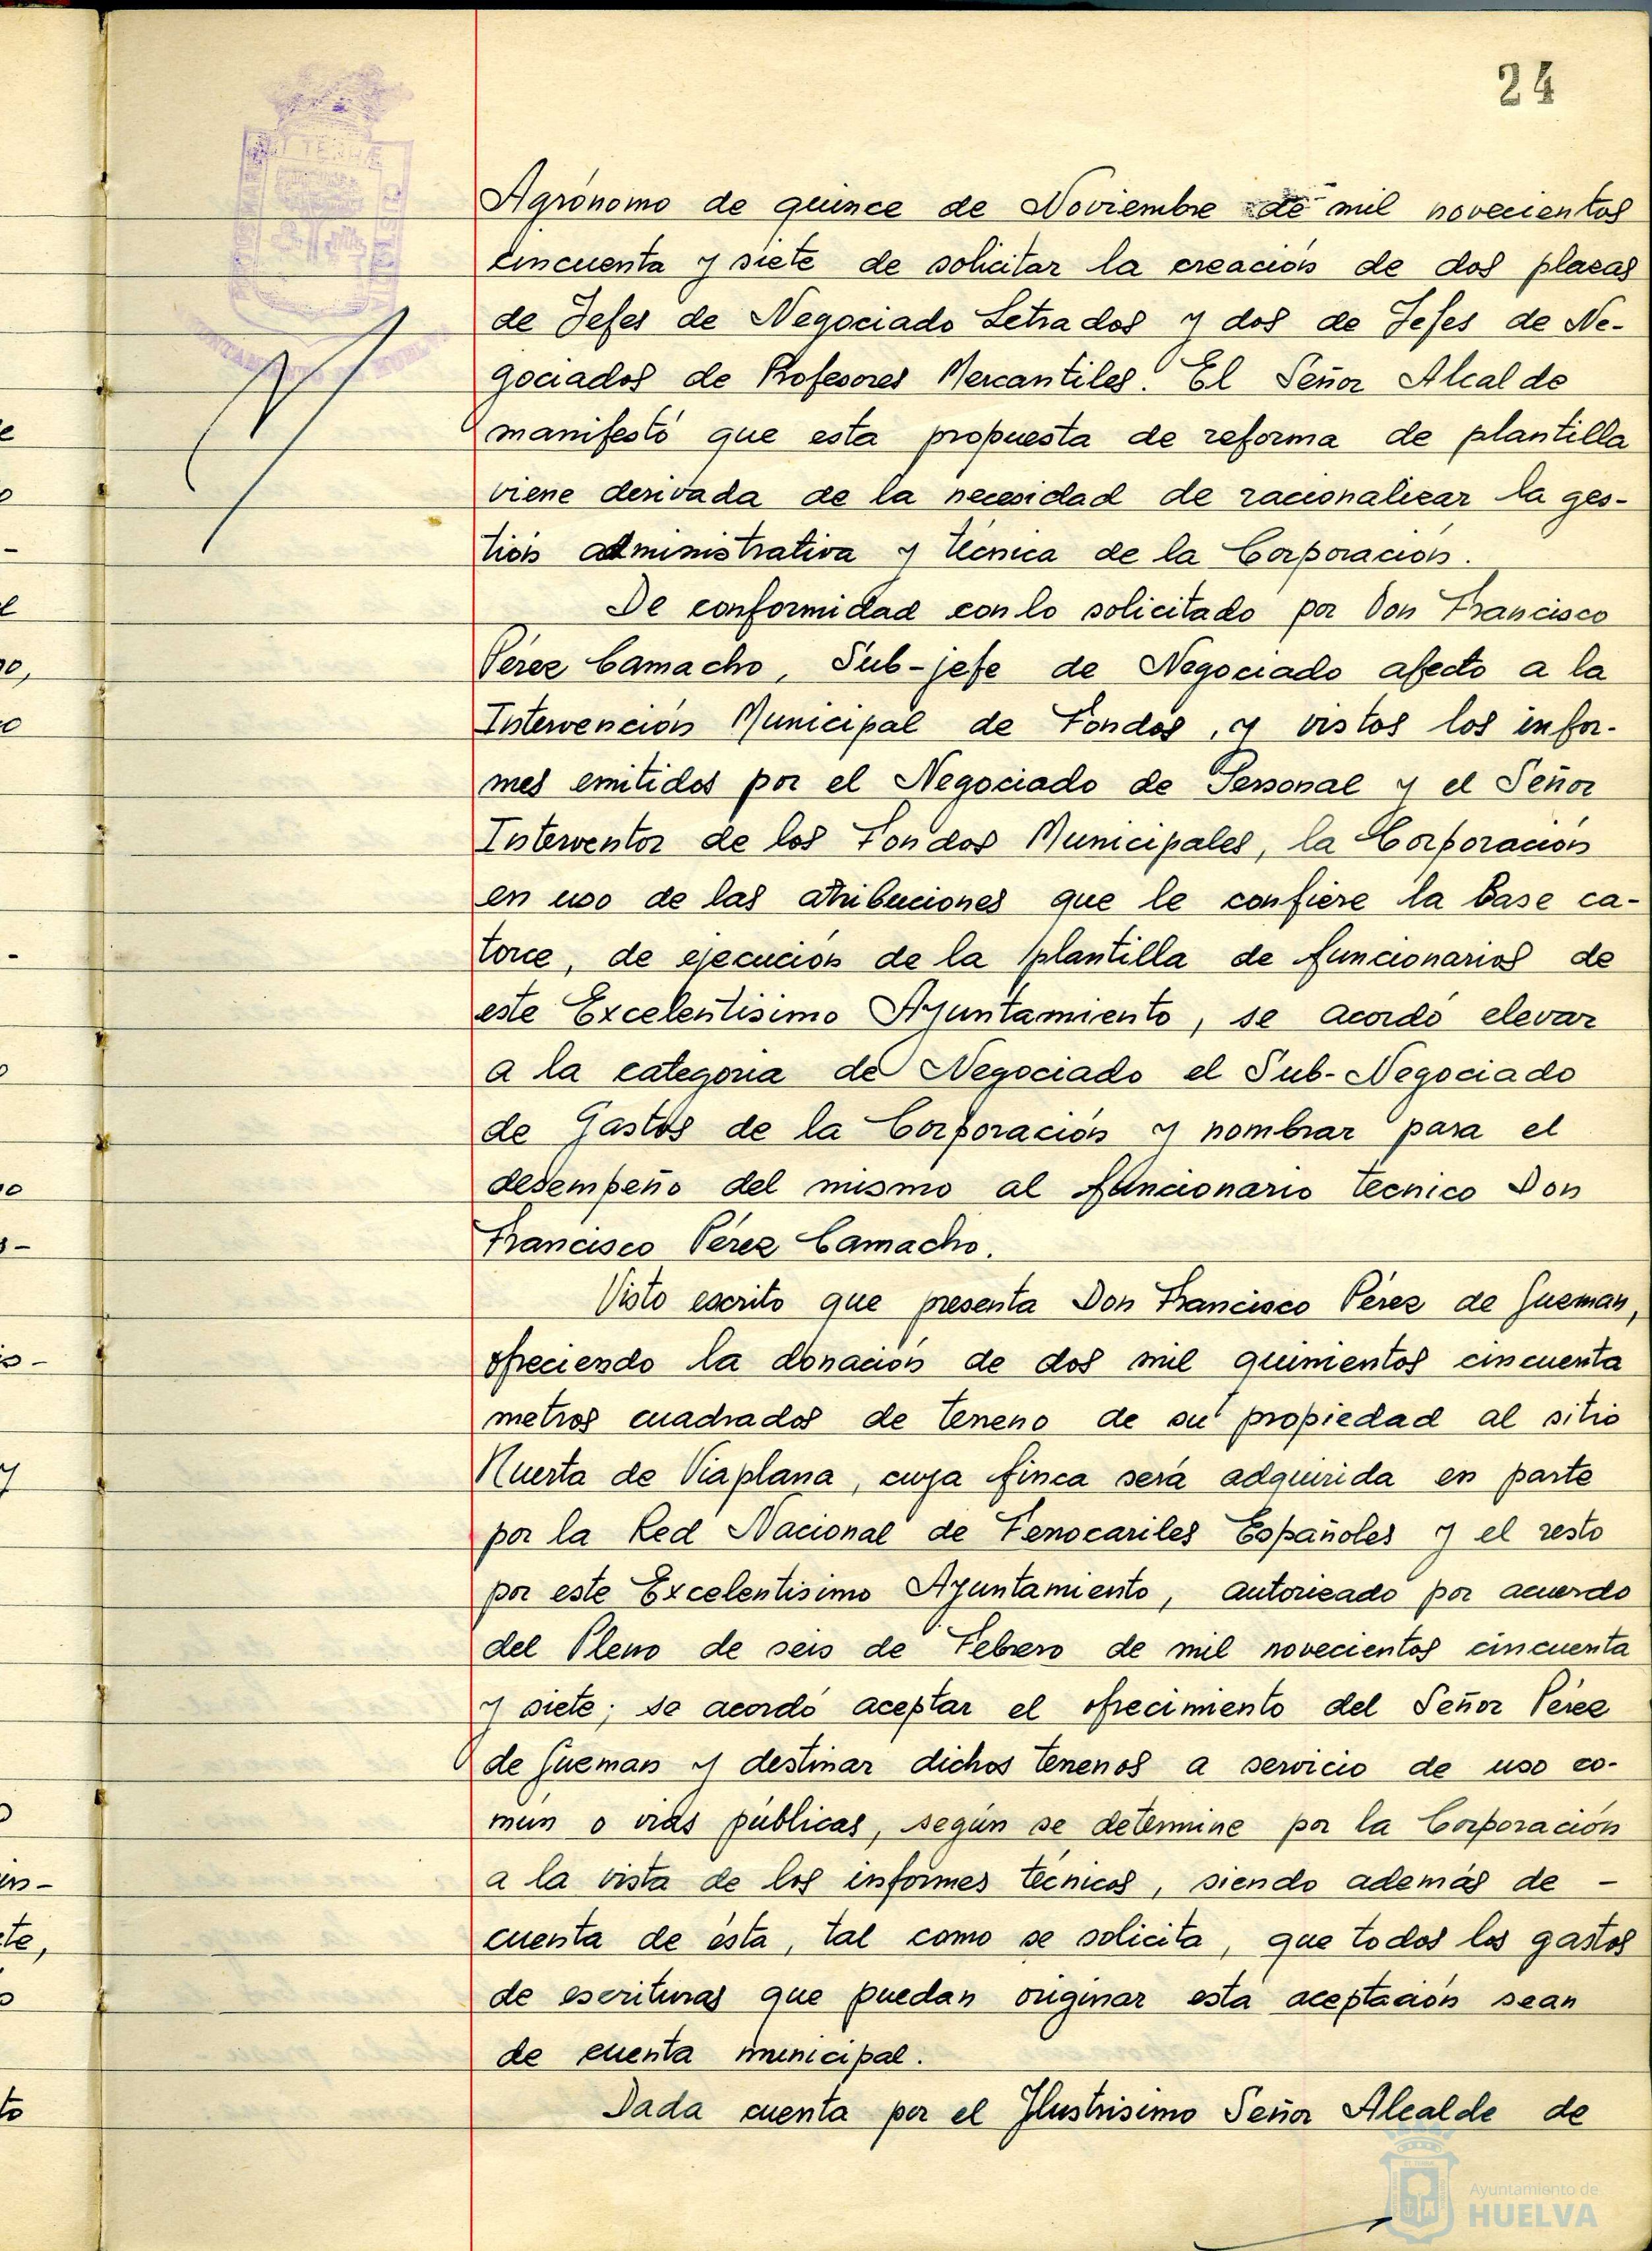 24
Agrónomo de quince de Noviembre de mil novecientos
cincuenta y siete de solicitar la creación de dos plazas
de Jefes de Negociado Letrados y dos de Jefes de Ne-
gociados de Profesores Mercantiles. El Señor Alcalde
manifestó que esta propuesta de reforma de plantilla
viene derivada de la necesidad de racionalizar la ges-
tión administrativa y técnica de la Corporación.
De conformidad con lo solicitado por Don Francisco
Pérez Camacho, Sub-jefe de Negociado afecto a la
Intervención Municipal de Fondos, y vistos los infor-
mes emitidos por el Negociado de Personal y el Señor
Interventor de los Fondos Municipales, la Corporación
en uso de las atribuciones que le confiere la Base ca-
torce, de ejecución de la plantilla de funcionarios de
este Excelentísimo Ayuntamiento, se acordó elevar
a la categoria de Negociado el Sub-Negociado
de Gastos de la Corporación y nombrar para el
desempeño del mismo al funcionario técnico Don
Francisco Pérez Camacho.
Visto escrito que presenta Don Francisco Pérez de Guzman,
ofreciendo la donación de dos mil quinientos cincuenta
metros cuadrados de terreno de su propiedad al sitio
Huerta de Viaplana, cuya finca será adquirida en parte
por la Red Nacional de Ferrocariles Españoles y el resto
por este Excelentísimo Ayuntamiento, autorizado por acuerdo
del Pleno de seis de Febrero de mil novecientos cincuenta
y siete; se acordó aceptar el ofrecimiento del Señor Pérez
de Guzman y destinar dichos terrenos a servicio de uso co-
mún o vias públicas, según se determine por la Corporación
a la vista de los informes técnicos, siendo además de -
cuenta de ésta, tal como se solicita, que todos los gastos
de escrituras que puedan originar esta aceptación sean
de cuenta municipal.
Dada cuenta por el Ilustrisimo Señor Alcalde de
Ayuntamiento de
HUELVA